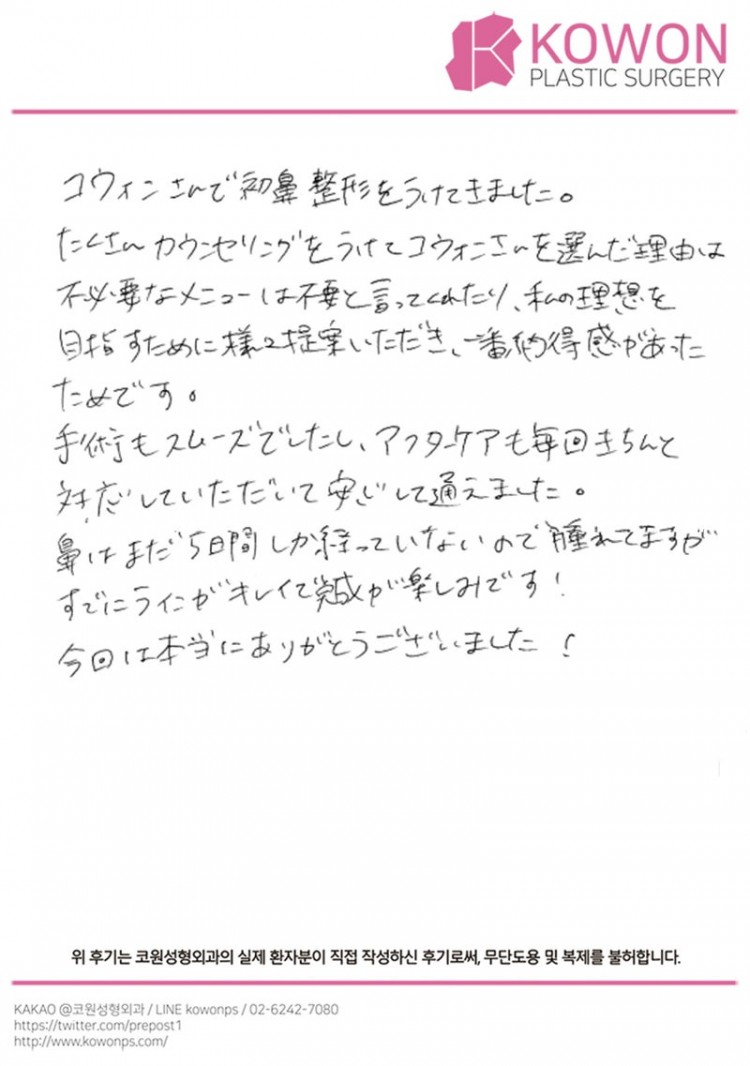 KOWON
PLASTIC SURGERY
コウォンさんで初鼻整形をうけてきました。
たくさんカウンセリングをうけてコウォンさんを選んだ理由は
不必要なメニューは不要と言ってくれたり、私の理想を
目指すために様々提案いただき、一番納得感があった
ためです。
手術もスムーズでしたし、アフターケアも毎回きちんと
対応していただいて安心して通えました。
鼻はまだ5日間しか経っていないので腫れてますが
すでにラインがキレイで完成が楽しみです!
今回は本当にありがとうございました!
위 후기는 코원성형외과의 실제 환자분이 직접 작성하신 후기로써, 무단도용 및 복제를 불허합니다.
KAKAO @코원성형외과 / LINE kowonps / 02-6242-7080
https://twitter.com/prepost1
http://www.kowonps.com/